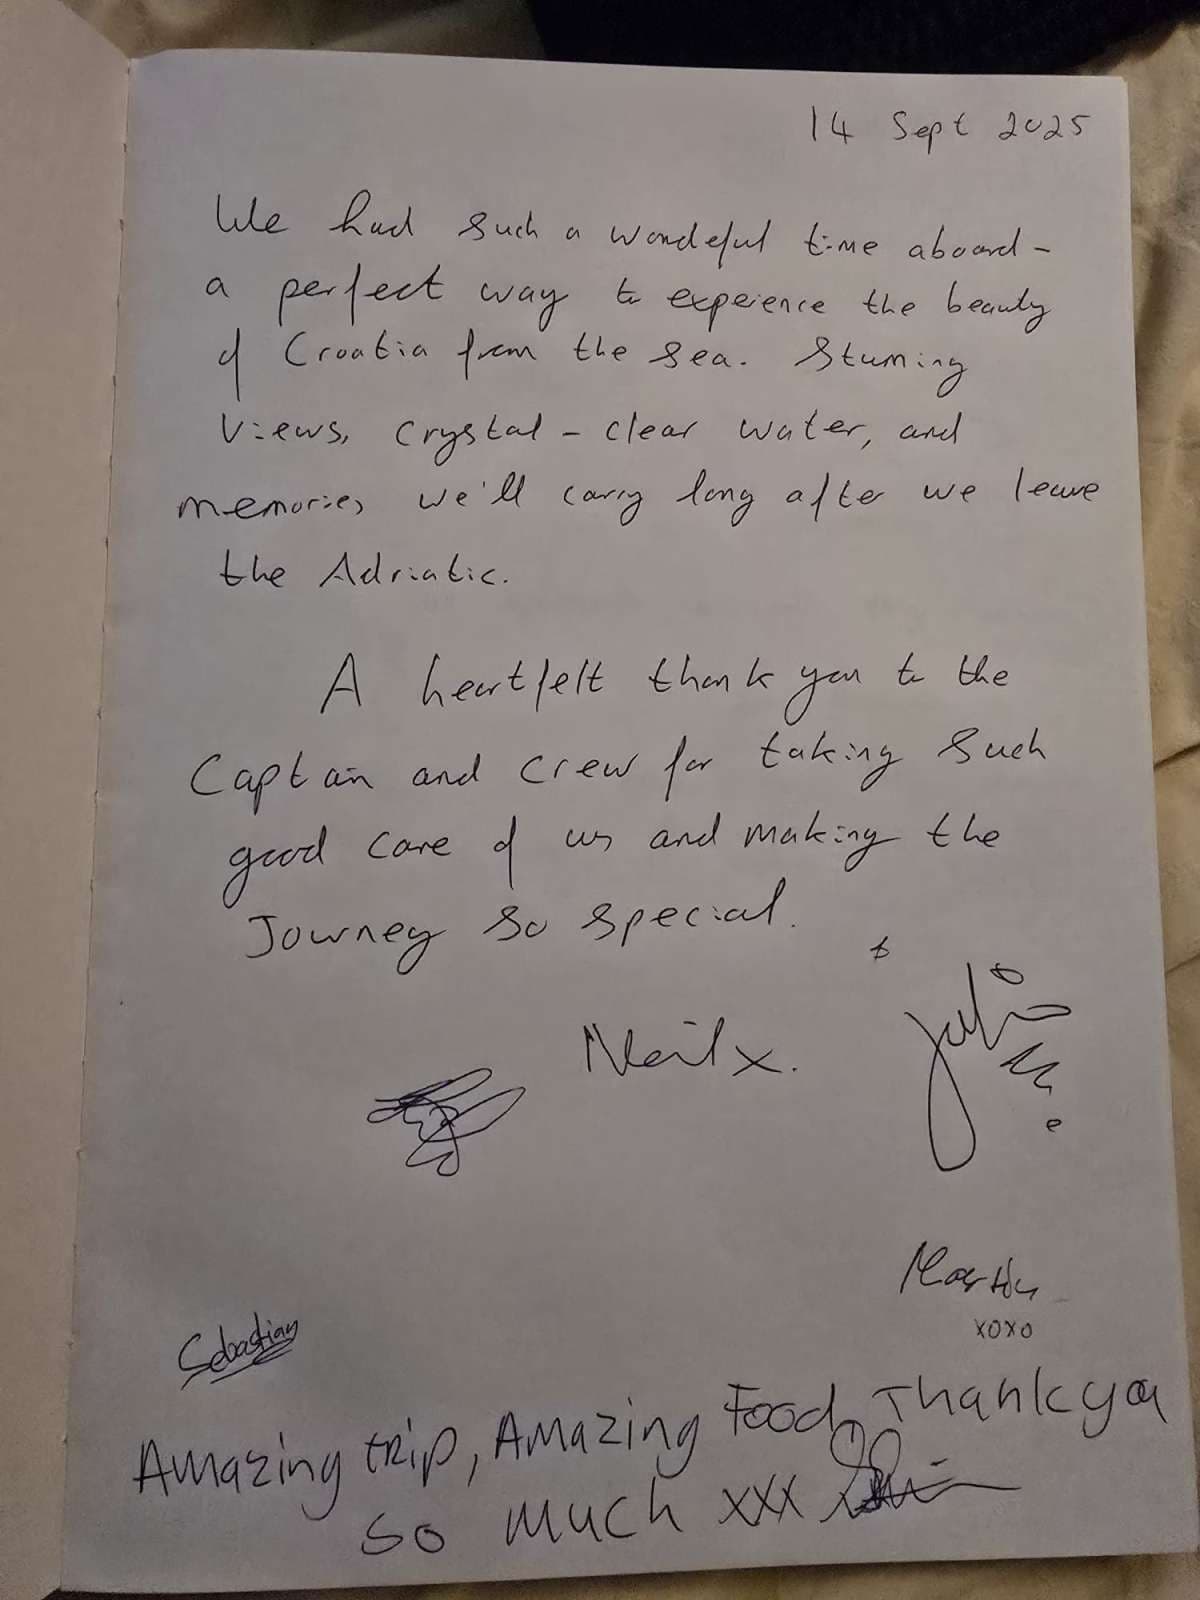 14 Sept 2025
We had such a wondeful time aboard -
a perfect way to expeience the beauty
of Croatia from the sea. Stunning
views, crystal - clear water, and
memories we'll carry long after we leave
the Adriatic.
A heartfelt thank you to the
Captain and crew for taking such
good care of us and making the
Journey so special.
Neil x.
Martin
xoxo
Sebastian
Amazing trip, Amazing Food, Thank you
so much xxx